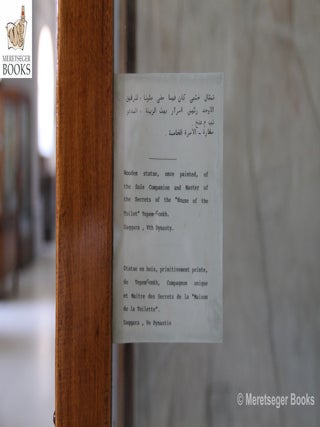 MERETSEGER
BOOKS
تمثال خشبى كان فيما مضى ملونا ، للرفيق
الاوحد رئيس اسرار بيت الزينة ،
سقارة - الاسرة الخامسة .
Wooden statue, once painted, of
the Sole Companion and Master of
the Secrets of the "House of the
Toilet" Tepem-ankh.
Saqqara , Vth Dynasty.
Statue en bois, primitivement peinte,
de Tepemankh, Compagnon unique
et Maitre des Secrets de la "Maison
de la Toilette".
Saqqara , Ve Dynastie
© Meretseger Books